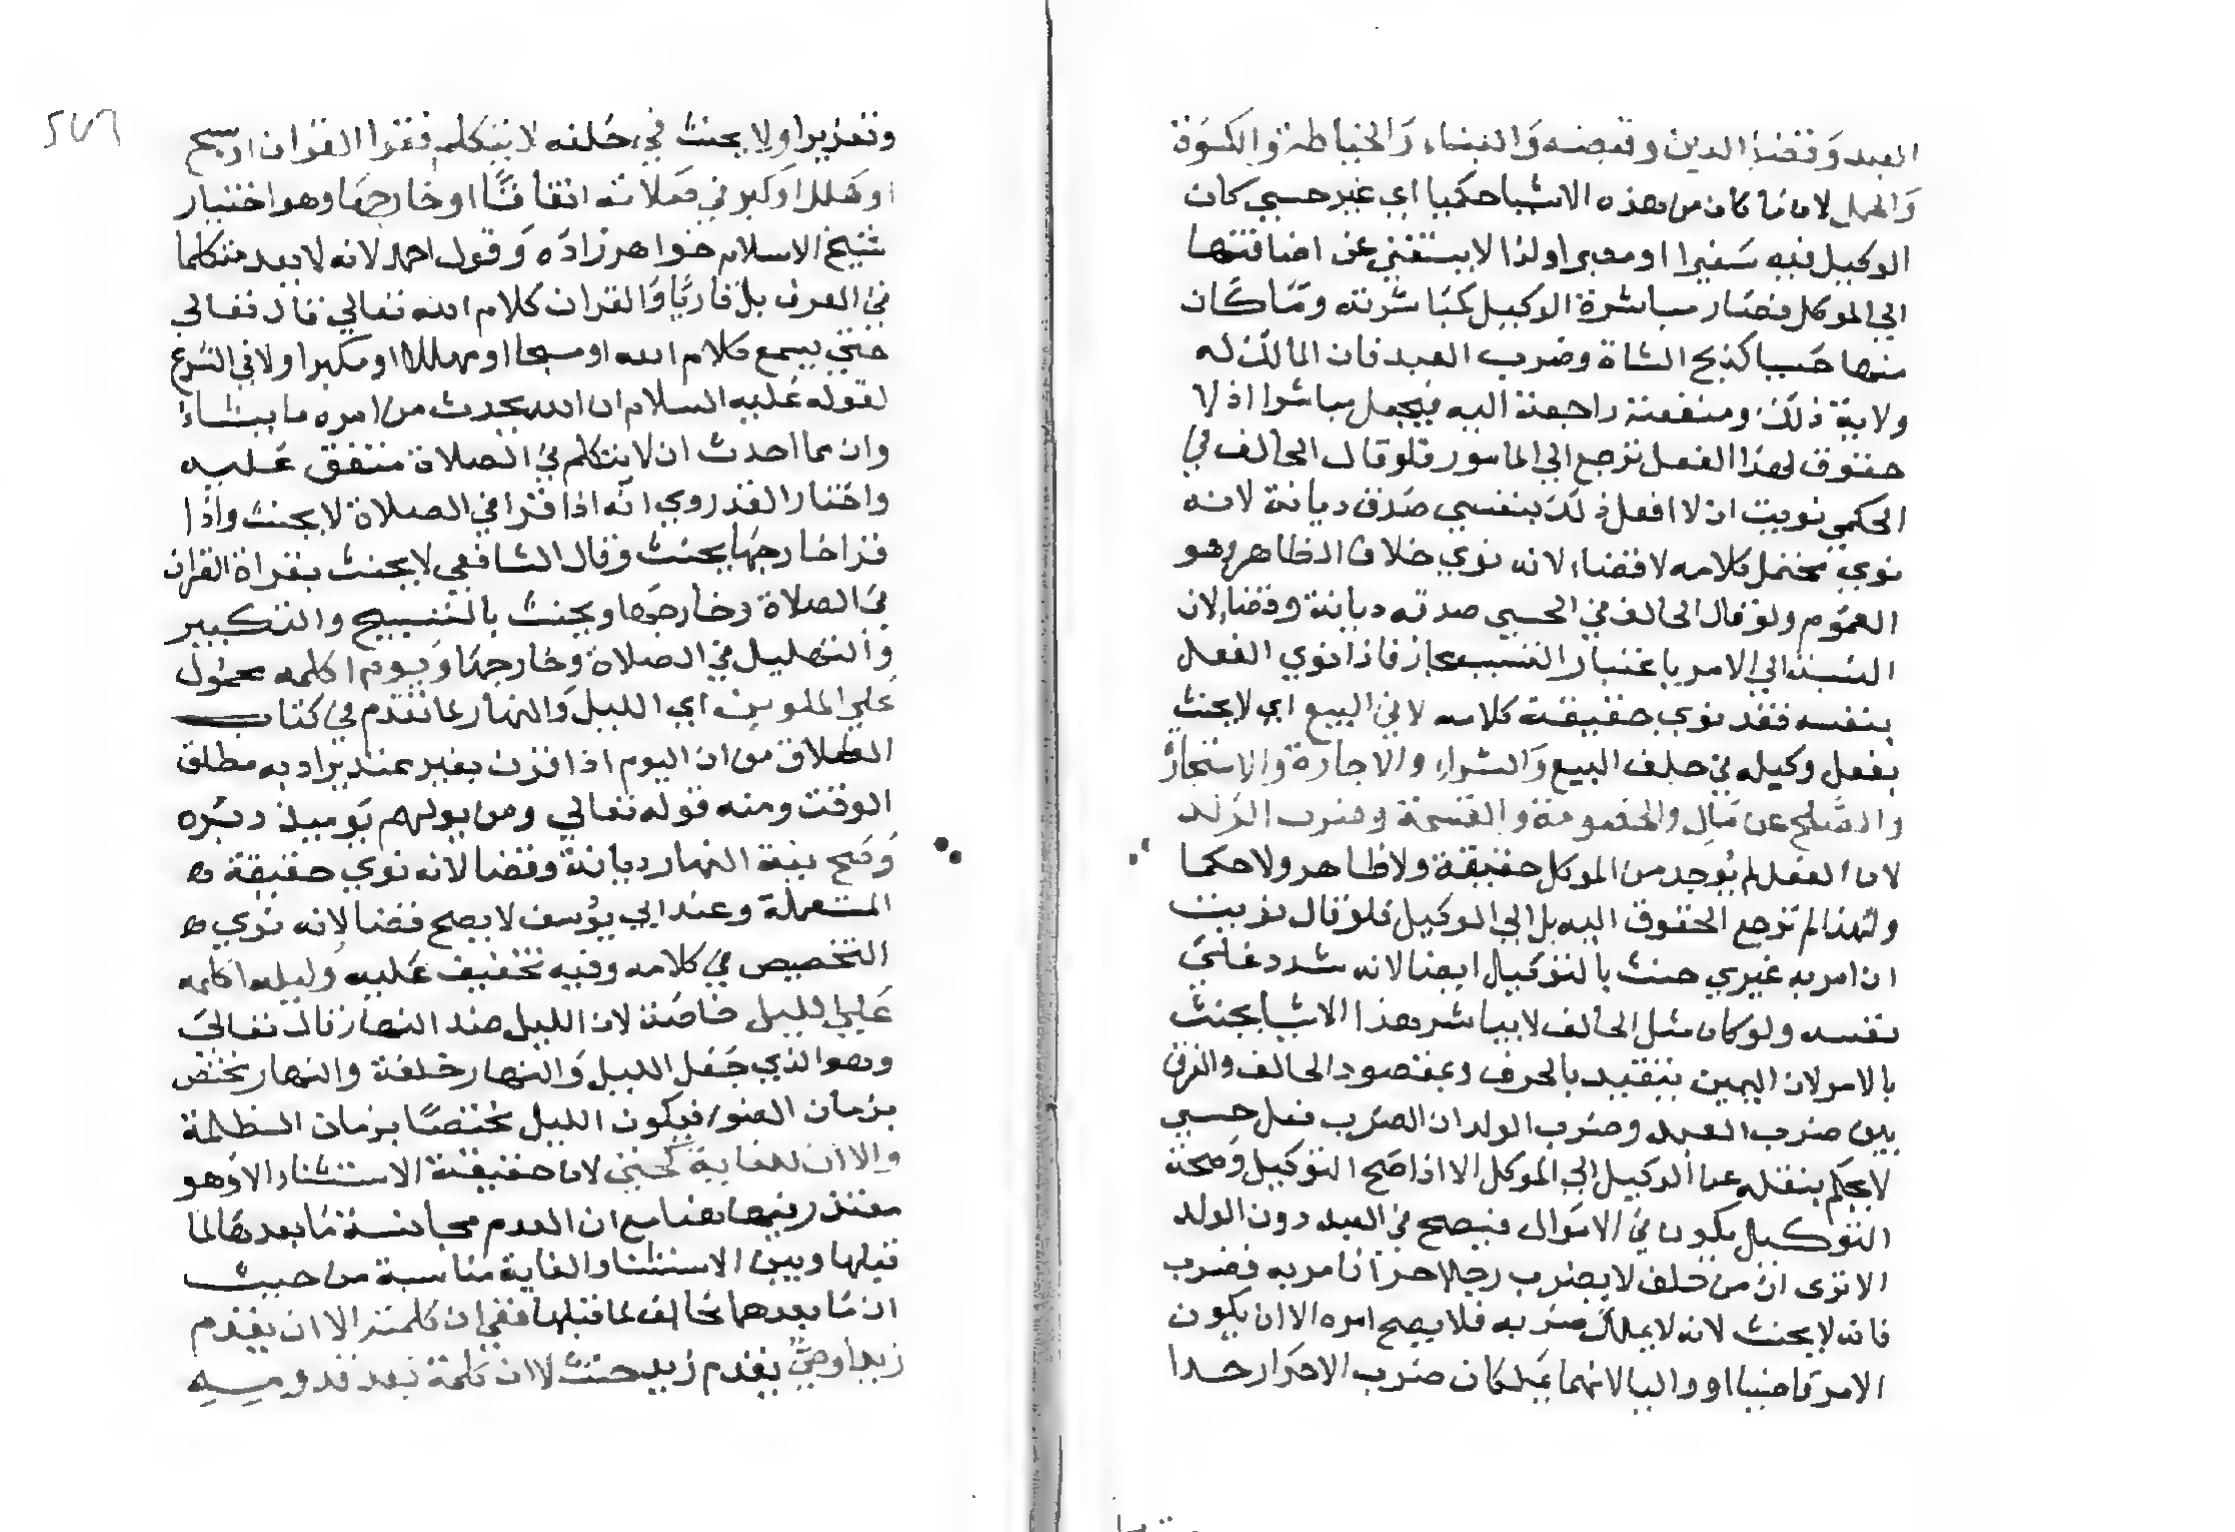 العبد وقضا الدين وقبضه والبناء والخياطة والكسوة
والحمل لان ما كان من هذه الاشيا حكميا اي غير حسي كان
الوكيل فيه سفيرا او معبرا ولذا لا يستغني عن اضافتها
الي الموكل فصار مباشرة الوكيل كمباشرته وما كان
منها حسيا كذبح الشاة وضرب العبد فان المالك له
ولاية ذلك ومنفعته راجعة اليه فيجعل مباشرا اذ لا
حقوق لهذا الفعل ترجع الي المامور فلو قال الحالف في
الحكمي نويت ان لا افعل ذلك بنفسي صدق ديانة لانه
نوي محتمل كلامه لا قضاء لانه نوي خلاف الظاهر وهو
العموم ولو قال الحالف في الحسي صدقه ديانة وقضا لان
النسبة الي الامر باعتبار التسبب مجاز فاذا نوي الفعل
بنفسه فقد نوي حقيقة كلامه لا في البيع اي لا يحنث
بفعل وكيله في حلف البيع والشراء والاجارة والاستجار
والصلح عن مال والخصومة والقسمة وضرب الولد
لان الفعل لم يوجد من الموكل حقيقة ولا ظاهر ولا حكما
ولهذا لم ترجع الحقوق اليه بل الي الوكيل فلو قال نويت
ان امر به غيري حنث بالتوكيل ايضا لانه شدد علي
نفسه ولو كان مثل الحالف لا يباشر هذا الاشيا يحنث
بالامر لان اليمين يتقيد بالعرف وبمقصود الحالف والفرق
بين ضرب العبد وضرب الولد ان الضرب فعل حسي
لا يحكم بنقله عن الوكيل الي الموكل الا اذا صح التوكيل وصحة
التوكيل يكون في الاموال فيصح في العبد دون الولد
الا تري ان من حلف لا يضرب رجلا حرا فامر به فضرب
فانه لا يحنث لانه لا يملك ضربه فلا يصح امره الا ان يكون
الامر قاضيا او واليا لانهما يملكان ضرب الاحرار حدا
٢٧٦
وتعزيرا ولا يحنث في حلفه لا يتكلم فقرا القران او سبح
او هلل او كبر في صلاته اتفاقا او خارجها وهو اختيار
شيخ الاسلام خواهر زاده وقول احمد لانه لا يعد متكلما
في العرف بل قاريا والقران كلام الله تعالي قال تعالي
حتي يسمع كلام الله او مسبحا او مهللا او مكبرا ولا في الشرع
لقوله عليه السلام ان الله يحدث من امره ما يشاء
وان مما احدث ان لا يتكلم في الصلاة متفق عليه
واختار القدوري انه اذا قرا في الصلاة لا يحنث واذا
قرا خارجها يحنث وقال الشافعي لا يحنث بقراة القران
في الصلاة وخارجها ويحنث بالتسبيح والتكبير
والتهليل في الصلاة وخارجها ويوم اكلمه محمول
علي الملوين اي الليل والنهار لما تقدم في كتاب
الطلاق من ان اليوم اذا قرن بغير ممتد يراد به مطلق
الوقت ومنه قوله تعالي ومن يولهم يوميذ دبره
وصح نية النهار ديانة وقضا لانه نوي حقيقة ه
المستعملة وعند ابي يوسف لا يصح قضا لانه نوي ه
التخصيص في كلامه وفيه تخفيف عليه وليله اكلمه
علي الليل خاصة لان الليل ضد النهار قال تعالي
وهو الذي جعل الليل والنهار خلفة والنهار يختص
بزمان الضوء فيكون الليل مختصا بزمان الظلمة
والا ان للغاية كحتي لان حقيقة الاستثناء الا وهو
متعذر فيها هنا مع ان العدم مجانسة ما بعدها لما
قبلها وبين الاستثنا والغاية مناسبة من حيث
ان ما بعدهما مخالف لما قبلها ففي ان كلمته الا ان يقدم
زيد او حتي يقدم زيد حنث لا ان كلمه بعد قدومه